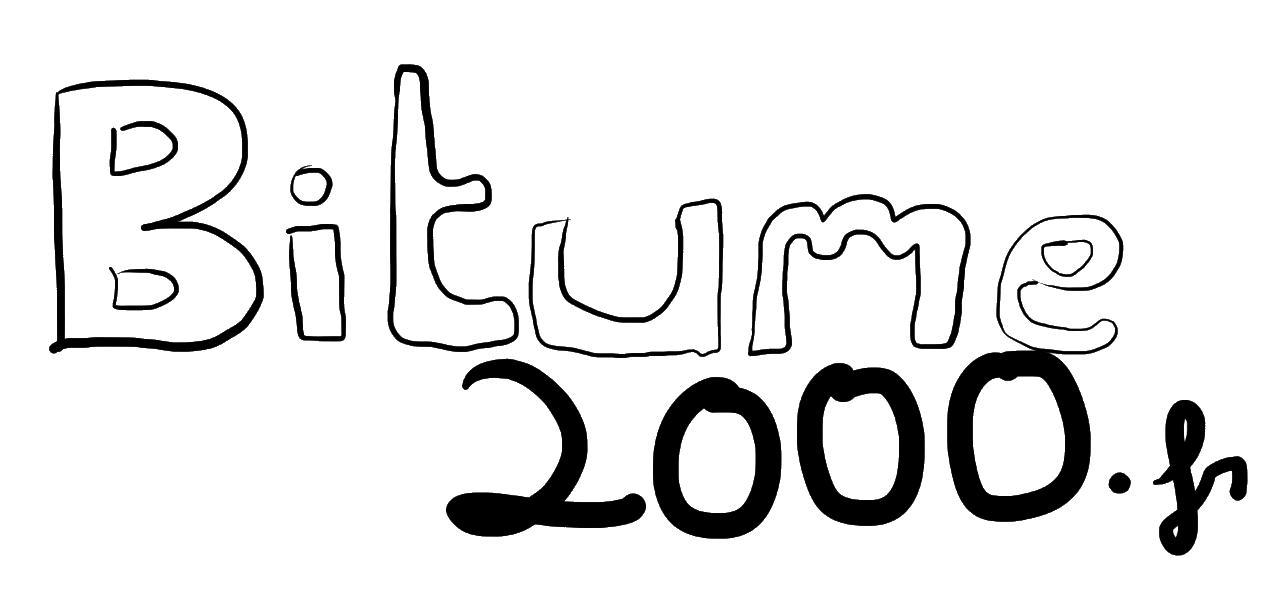 Bitume
2000.fr